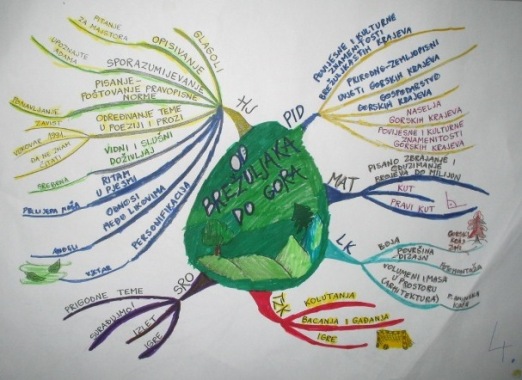 OD
BREŽULJAKA
DO GORA
HJ
GLAGOLI
OPISIVANJE
PITANJE
ZA MAJSTORA
UPOZNAJTE
ADAMA
SPORAZUMIJEVANJE
PISANJE-
POŠTOVANJE PRAVOPISNE
NORME
PONAVLJANJE
ODREĐIVANJE TEME
U POEZIJI I PROZI
ZAVIST
VUKOVAR 1991
DA NE ZNAM
ČITATI
VIDNI I SLUŠNI
DOŽIVLJAJ
GREBENA
RITAM
U PJESMI
ODNOSI
MEĐU LIKOVIMA
ANĐELI
PERSONIFIKACIJA
VJETAR
PID
POVIJESNE I KULTURNE
ZNAMENITOSTI
BREŽULJKASTIH KRAJEVA
PRIRODNO-ZEMLJOPISNI
UVJETI GORSKIH KRAJEVA
GOSPODARSTVO
GORSKIH KRAJEVA
NASELJA
GORSKIH KRAJEVA
POVIJESNE I KULTURNE
ZNAMENITOSTI
GORSKIH KRAJEVA
MAT
PISANO ZBRAJANJE I
ODUZIMANJE
BROJEVA DO MILIJUN
KUT
PRAVI KUT
LK
BOJA
GORSKI
KRAJ
POVRŠINA
DIZAJN
VOLUMENI I MASA
U PROSTORU
(ARHITEKTURA)
TZK
KOLUTANJA
BACANJA I GAĐANJA
IGRE
SRO
PRIGODNE TEME
SURAĐUJMO!
IZLET
IGRE
4.